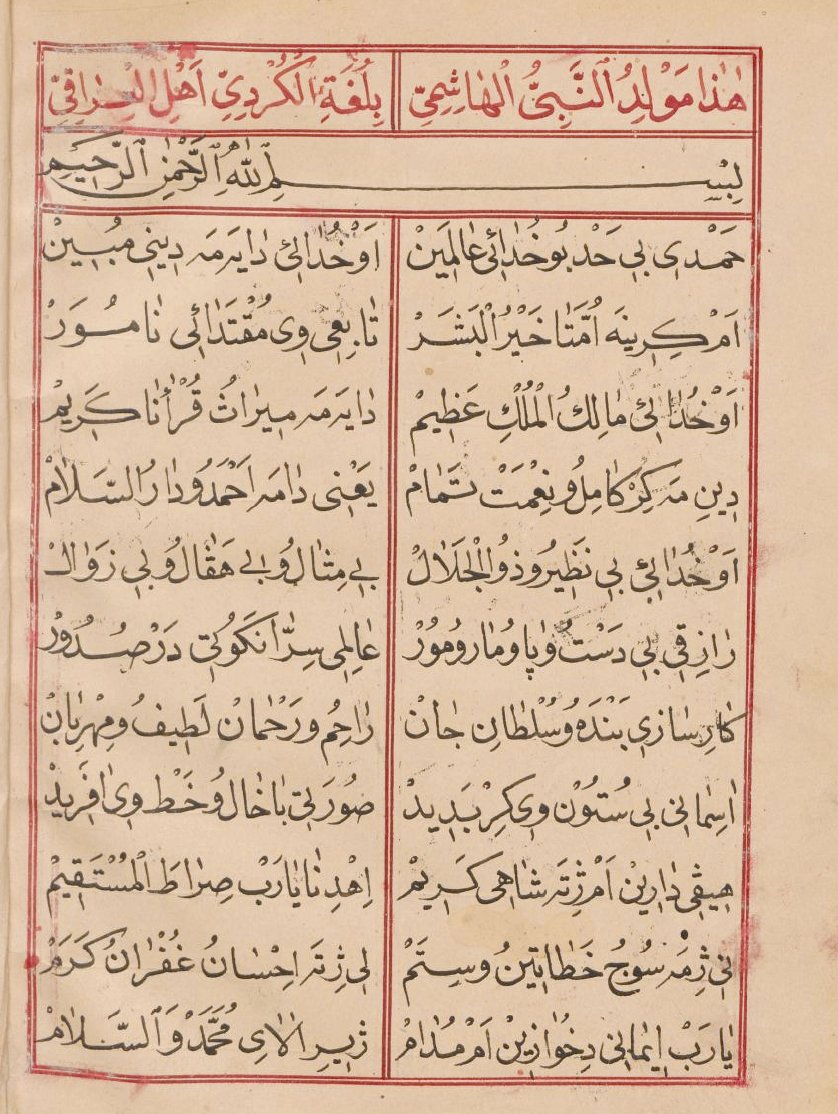 هٰذا مَوْلِدُ النَّبِيُّ الْهٰاشِمِيّ بِلُغَةِ الْكُرْدِيِّ اَهْلِ
بِسْمِ اللّٰهِ الرَّحْمٰنِ الرَّحِيمِ
حَمْدِى بِى حَدْ بُو خُدٰائِى عٰالَمِينْ اَوْ خُدٰائِىْ دٰايَه مَه دِينِى مُبِينْ
اَمْ كِرِينَه اُمَّتٰا خَيْرُ الْبَشَرْ تٰابِعِى وِى مُقْتَدٰائِى نٰامُوَرْ
اَوْ خُدٰائِىْ مٰالِكُ الْمُلْكِ عَظِيمْ دٰايَه مَه مِيرٰاثُ قُرْاٰنٰا كَرِيمْ
دِينِ مَه كِرْ كٰامِلُ و نِعْمَتْ تَمَامْ يَعْنِى دٰامَه اَحْمَدُ و دٰارُ السَّلٰامْ
اَوْ خُدٰائِىْ بِى نَظِيرُ و ذُو الْجَلٰالْ بِى مِثٰالُ و بِى هَڤٰالُ و بِى زَوٰالْ
رٰازِقِى بِى دَسْتُ و پٰا و مٰارُ و مُورْ عٰالِمِى سِرّٰا نَكَوُتِىْ دَرْ صُدُورْ
كٰارِسٰازِى بَنْدَه و سُلْطٰانِ جٰانْ رٰاحِمُ و رَحْمٰانْ لَطِيفُ و مِهْرِبٰانْ
اٰسِمٰانِى بِى سُتُوُنْ وِى كِرْ بَدِيدْ صُورَتِىْ بٰا خٰالُ و خَطْ وِى اٰفَرِيدْ
هِيڤِى دٰارِينْ اَمْ ژِتَه شٰاهِى كَرِيمْ اِهْدِنٰا يٰارَبْ صِرٰاطَ الْمُسْتَقِيمْ
نِى ژِمَه سُوجُ خَطٰاتِينُ و سِتَمْ لِى ژِتَه اِحْسٰانُ غُفْرٰانُ كَرَمْ
يٰارَبْ اِيمٰانِى دِخُوٰازِينْ اَمْ مُدٰامْ ژِبِرِ اٰلٰاىِ مُحَمَّدْ وَ السَّلٰامْ